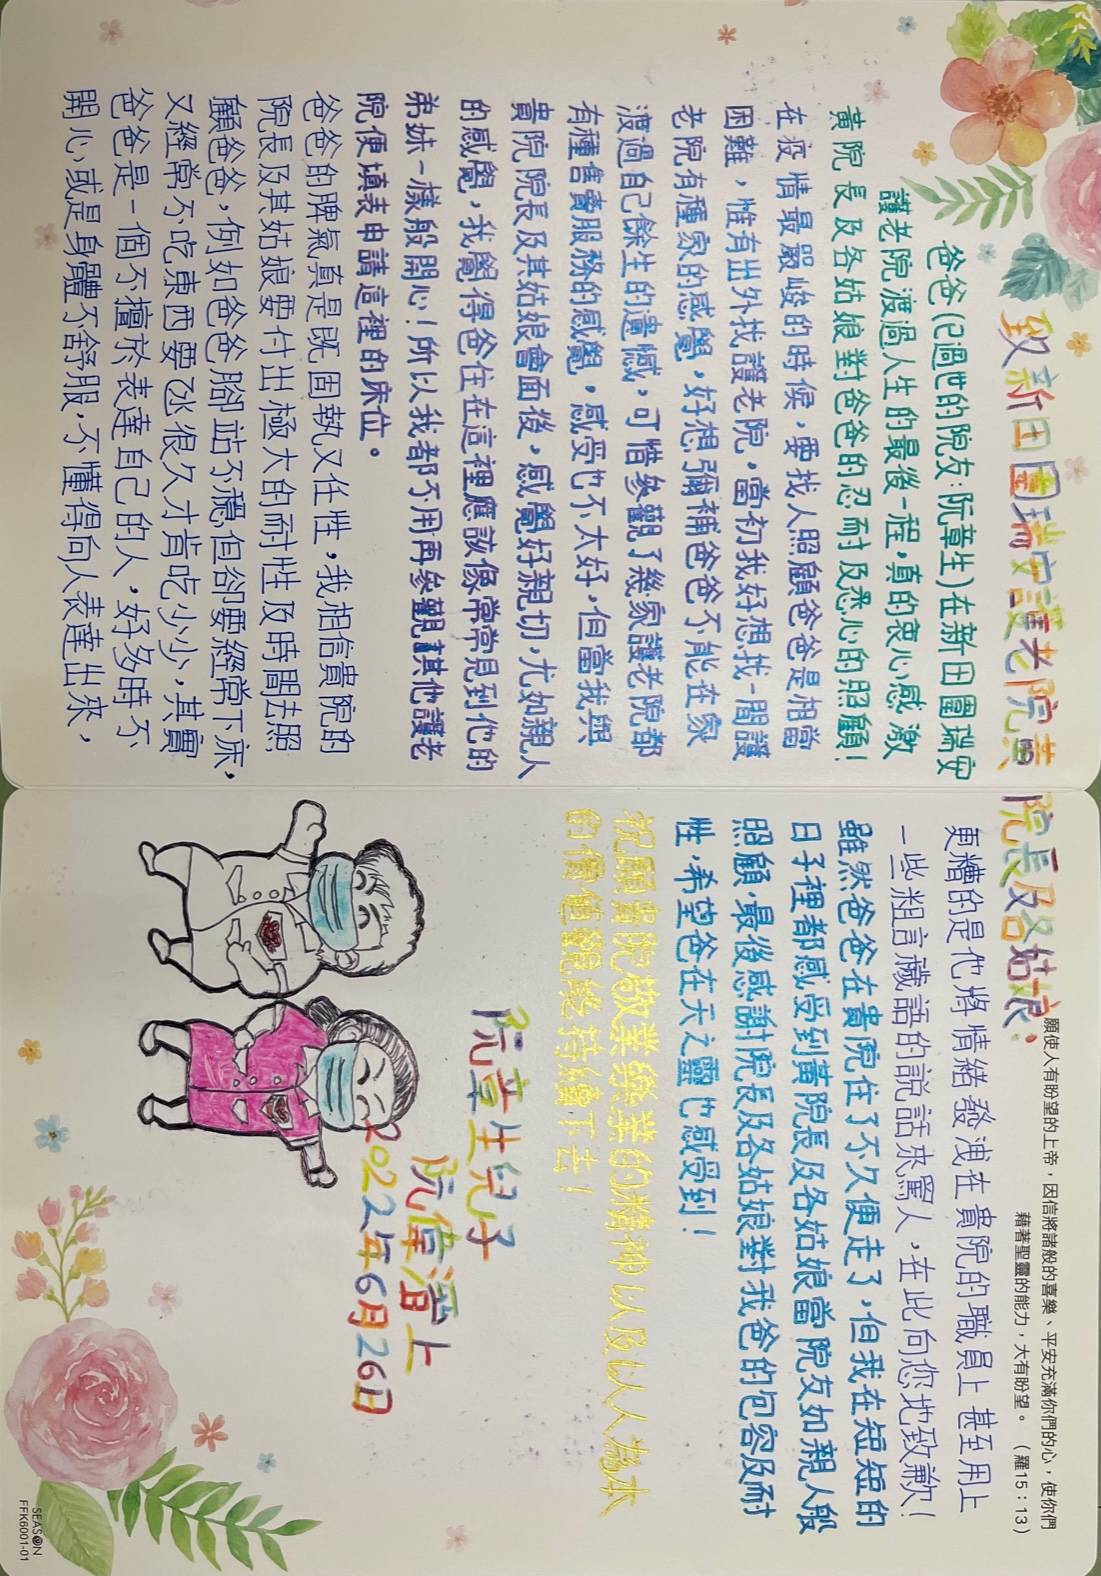 致新田圍瑞安護老院黃院長及各姑娘：
願使人有盼望的上帝，因信將諸般的喜樂、平安充滿你們的心，使你們
藉著聖靈的能力，大有盼望。（羅15：13）
爸爸(已過世的院友:阮章生)在新田圍瑞安
護老院渡過人生的最後一程，真的衷心感激
黃院長及各姑娘對爸爸的忍耐及悉心的照顧！
在疫情最嚴峻的時候，要找人照顧爸爸是相當
困難，惟有出外找護老院，當初我好想找一間護
老院有種家的感覺，好想彌補爸爸不能在家
渡過自己餘生的遺憾，可惜參觀了幾家護老院都
有種售賣服務的感覺，感受也不太好，但當我與
貴院院長及其姑娘會面後，感覺好親切，尤如親人
的感覺，我覺得爸住在這裡應該像常常見到他的
弟妹一樣般開心！所以我都不用再參觀其他護老
院便填表申請這裡的床位。
爸爸的脾氣真是既固執又任性，我相信貴院的
院長及其姑娘要付出極大的耐性及時間去照
顧爸爸，例如爸爸腳站不穩但卻要經常下床，
又經常不吃東西要氹很久才肯吃少少，其實
爸爸是一個不擅於表達自己的人，好多時不
開心或是身體不舒服，不懂得向人表達出來，
更糟的是他將情緒發洩在貴院的職員上甚至用上
一些粗言穢語的說話來罵人，在此向您地致歉！
雖然爸爸在貴院住了不久便走了，但我在短短的
日子裡都感受到黃院長及各姑娘當院友如親人般
照顧，最後感謝院長及各姑娘對我爸的包容及耐
性，希望爸在天之靈也感受到！
祝願貴院敬業樂業的精神以及以人為本
的價值觀能持續下去！
阮章生兒子
阮偉滔上
2022年6月26日
SEASON
FFK6001-01